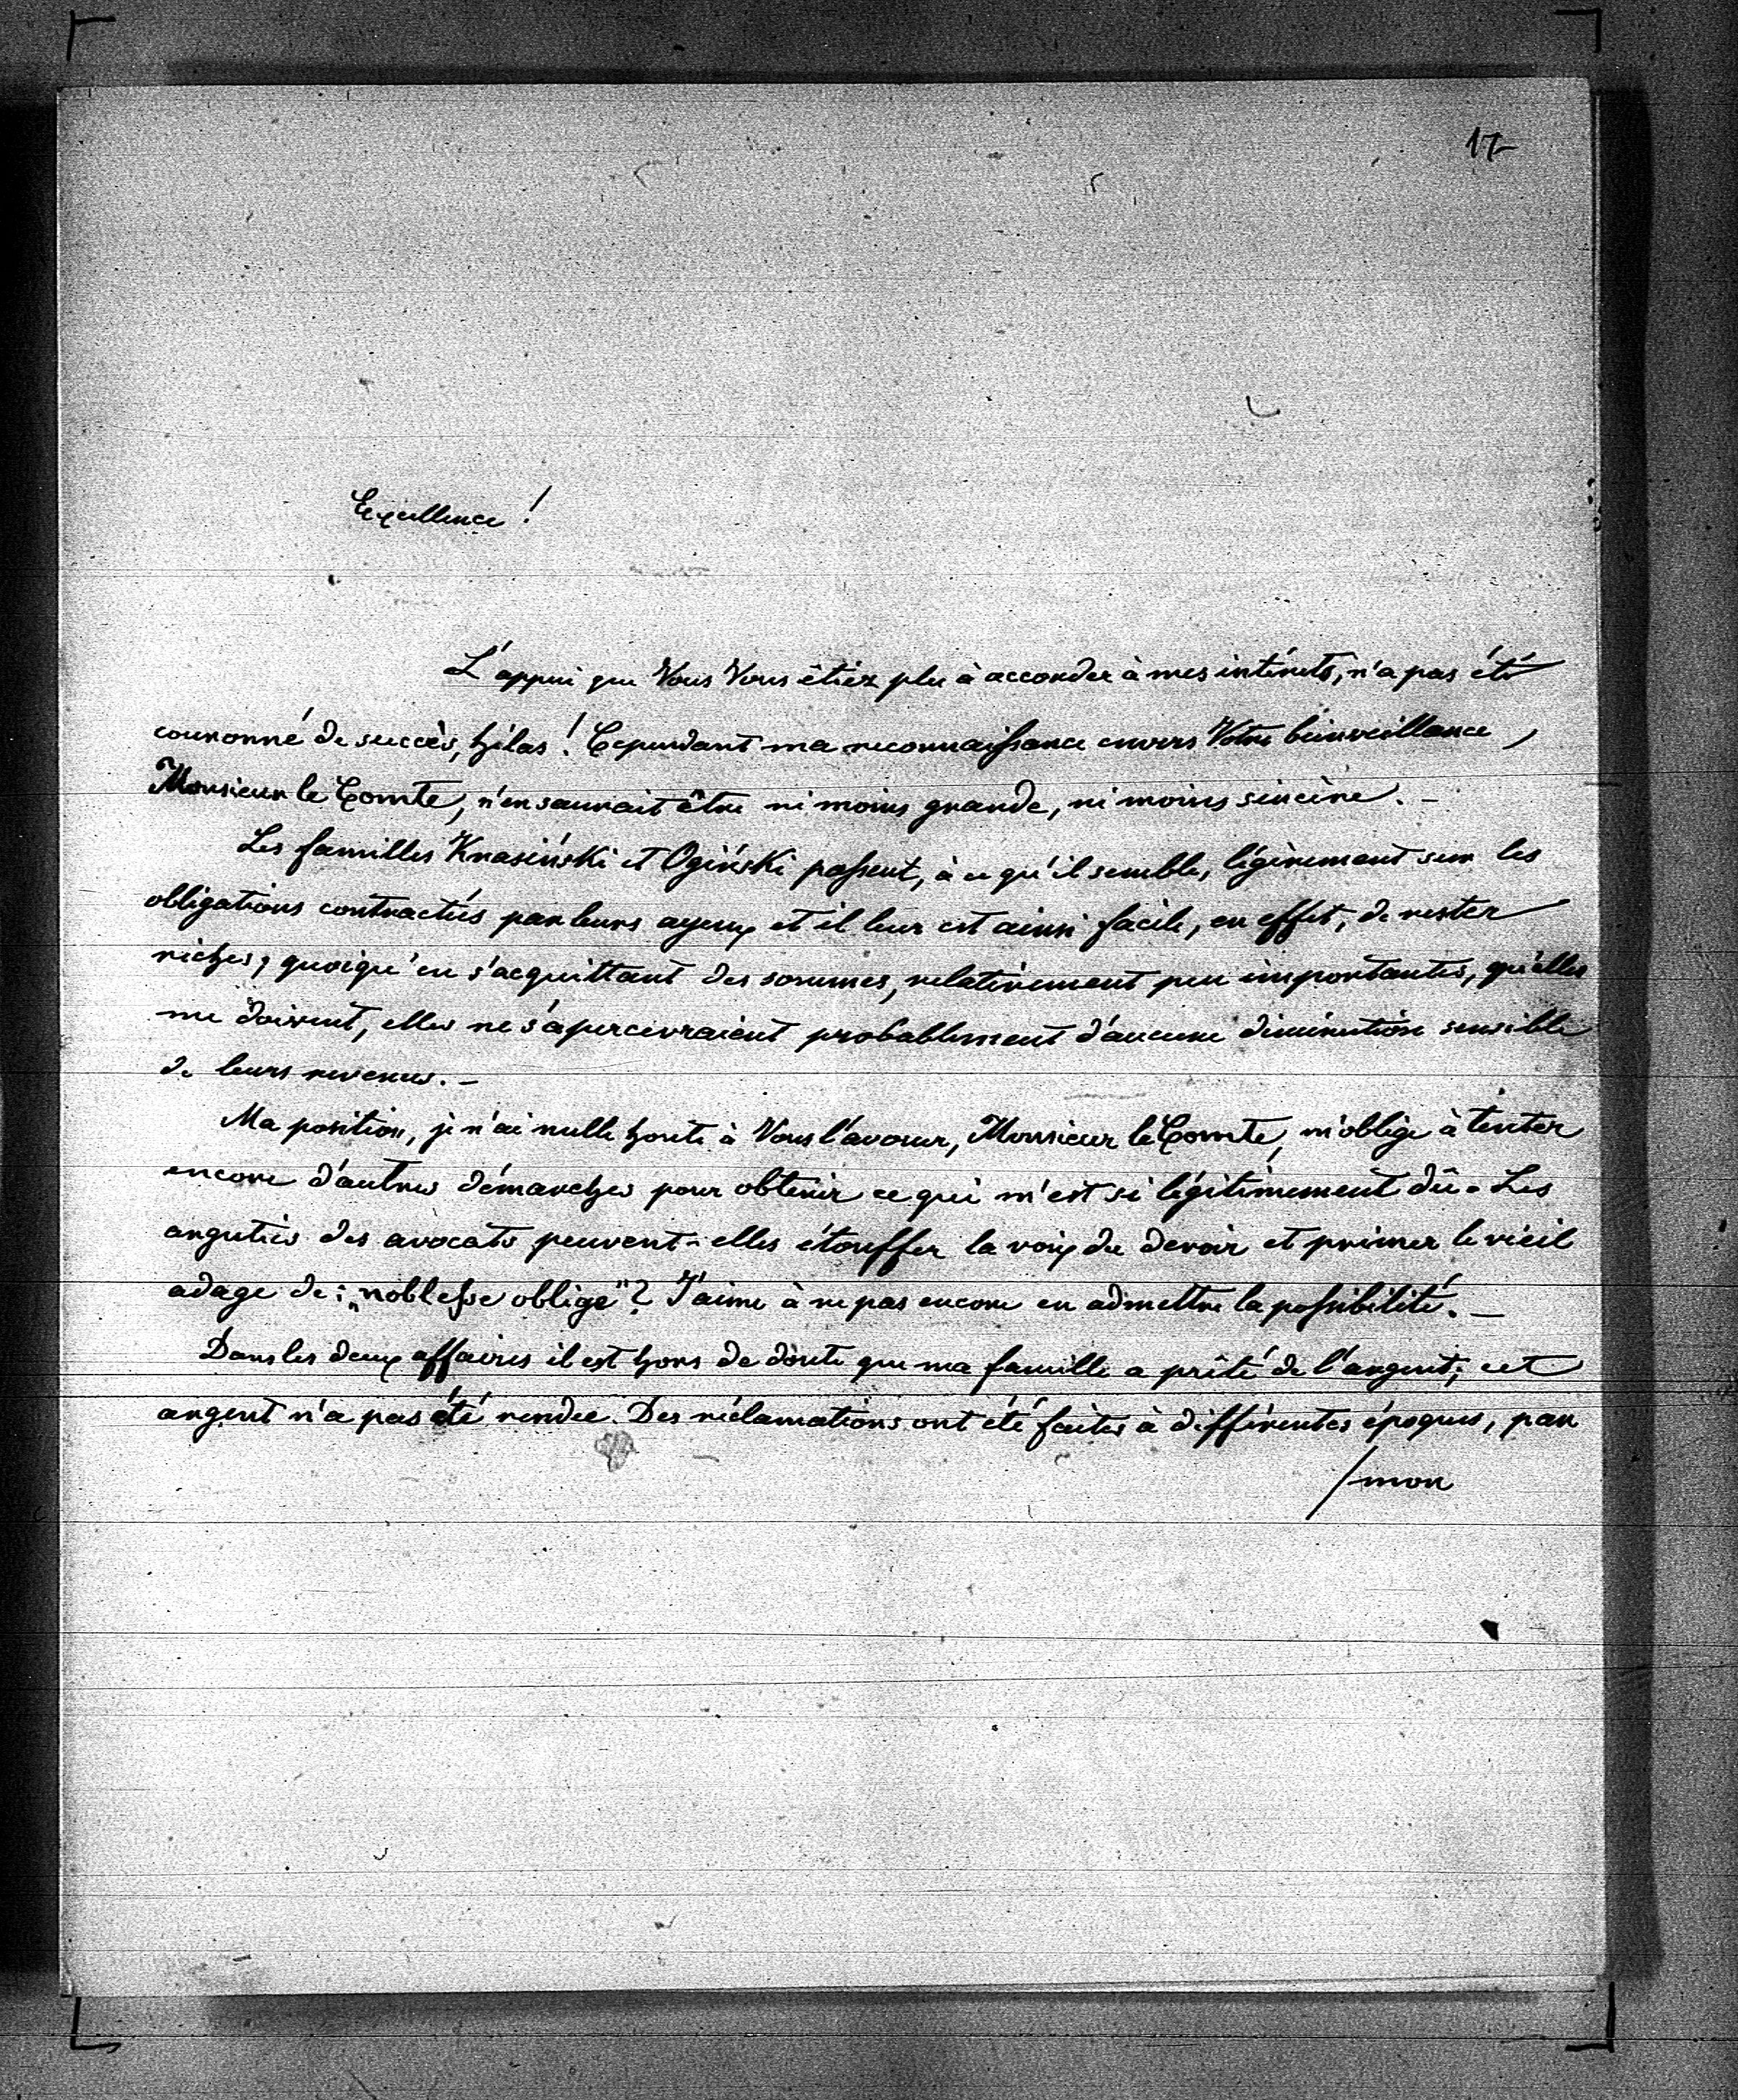 17
Excellence !
L'appui que Vous Vous êtiez plu à accorder à mes intérets, n'a pas été
couronné de succès, hélas ! Cependant ma reconnaissance envers Votre bienveillance,
Monsieur le Comte, n'en saurait être ni moins grande, ni moins sincère. –
Les familles Krasiński et Ogiński passent, à ce qu'il semble, légèrement sur les
obligations contractées par leurs ayeux et il leur est ainsi facile, en effet, de rester
riches, quoiqu'en s'acquittant des sommes, relativement peu importantes, qu'elles
me doivent, elles ne s'apercevraient probablement d'aucune diminution sensible
de leurs revenus. –
Ma position, je n'ai nulle honte à Vous l'avouer, Monsieur le Comte, m'oblige à tenter
encore d'autres démarches pour obtenir ce qui m'est si légitimement dû. Les
arguties des avocats peuvent-elles étouffer la voix du devoir et primer le vieil
adage de : „noblesse oblige" ? J'aime à ne pas encore en admettre la possibilité. –
Dans les deux affaires il est hors de doute que ma famille a prêté de l'argent; cet
argent n'a pas été rendu. Des réclamations ont été faites à différentes époques, par
/mon